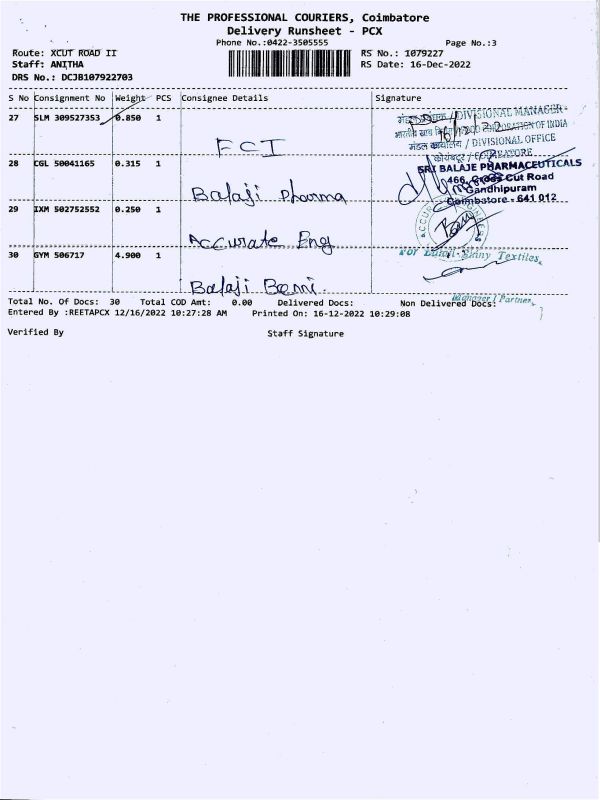 THE PROFESSIONAL COURIERS, Coimbatore
Delivery Runsheet - PCX
Phone No.:0422-3505555 Page No.:3
Route: XCUT ROAD II RS No.: 1079227
Staff: ANITHA RS Date: 16-Dec-2022
DRS No.: DCJB107922703
S No Consignment No Weight PCS Consignee Details Signature
27 SLM 309527353 0.850 1
FCI
मंडल / DIVISIONAL MANAGER
भारतीय खाद्य CORPORATION OF INDIA
16/12/22
मंडल कार्यालय / DIVISIONAL OFFICE
कोयंबटूर / COIMBATORE
28 CGL 50041165 0.315 1
Balaji pharma
SRI BALAJE PHARMACEUTICALS
466, Cross Cut Road
Gandhipuram
Coimbatore - 641 012
29 IXM 502752552 0.250 1
Accurate Eng
ACCURATE ENGINEERS
30 GYM 506717 4.900 1
Balaji
For Textiles,
Manager / Partner,
Total No. Of Docs: 30 Total COD Amt: 0.00 Delivered Docs: Non Delivered Docs:
Entered By :REETAPCX 12/16/2022 10:27:28 AM Printed On: 16-12-2022 10:29:08
Verified By Staff Signature